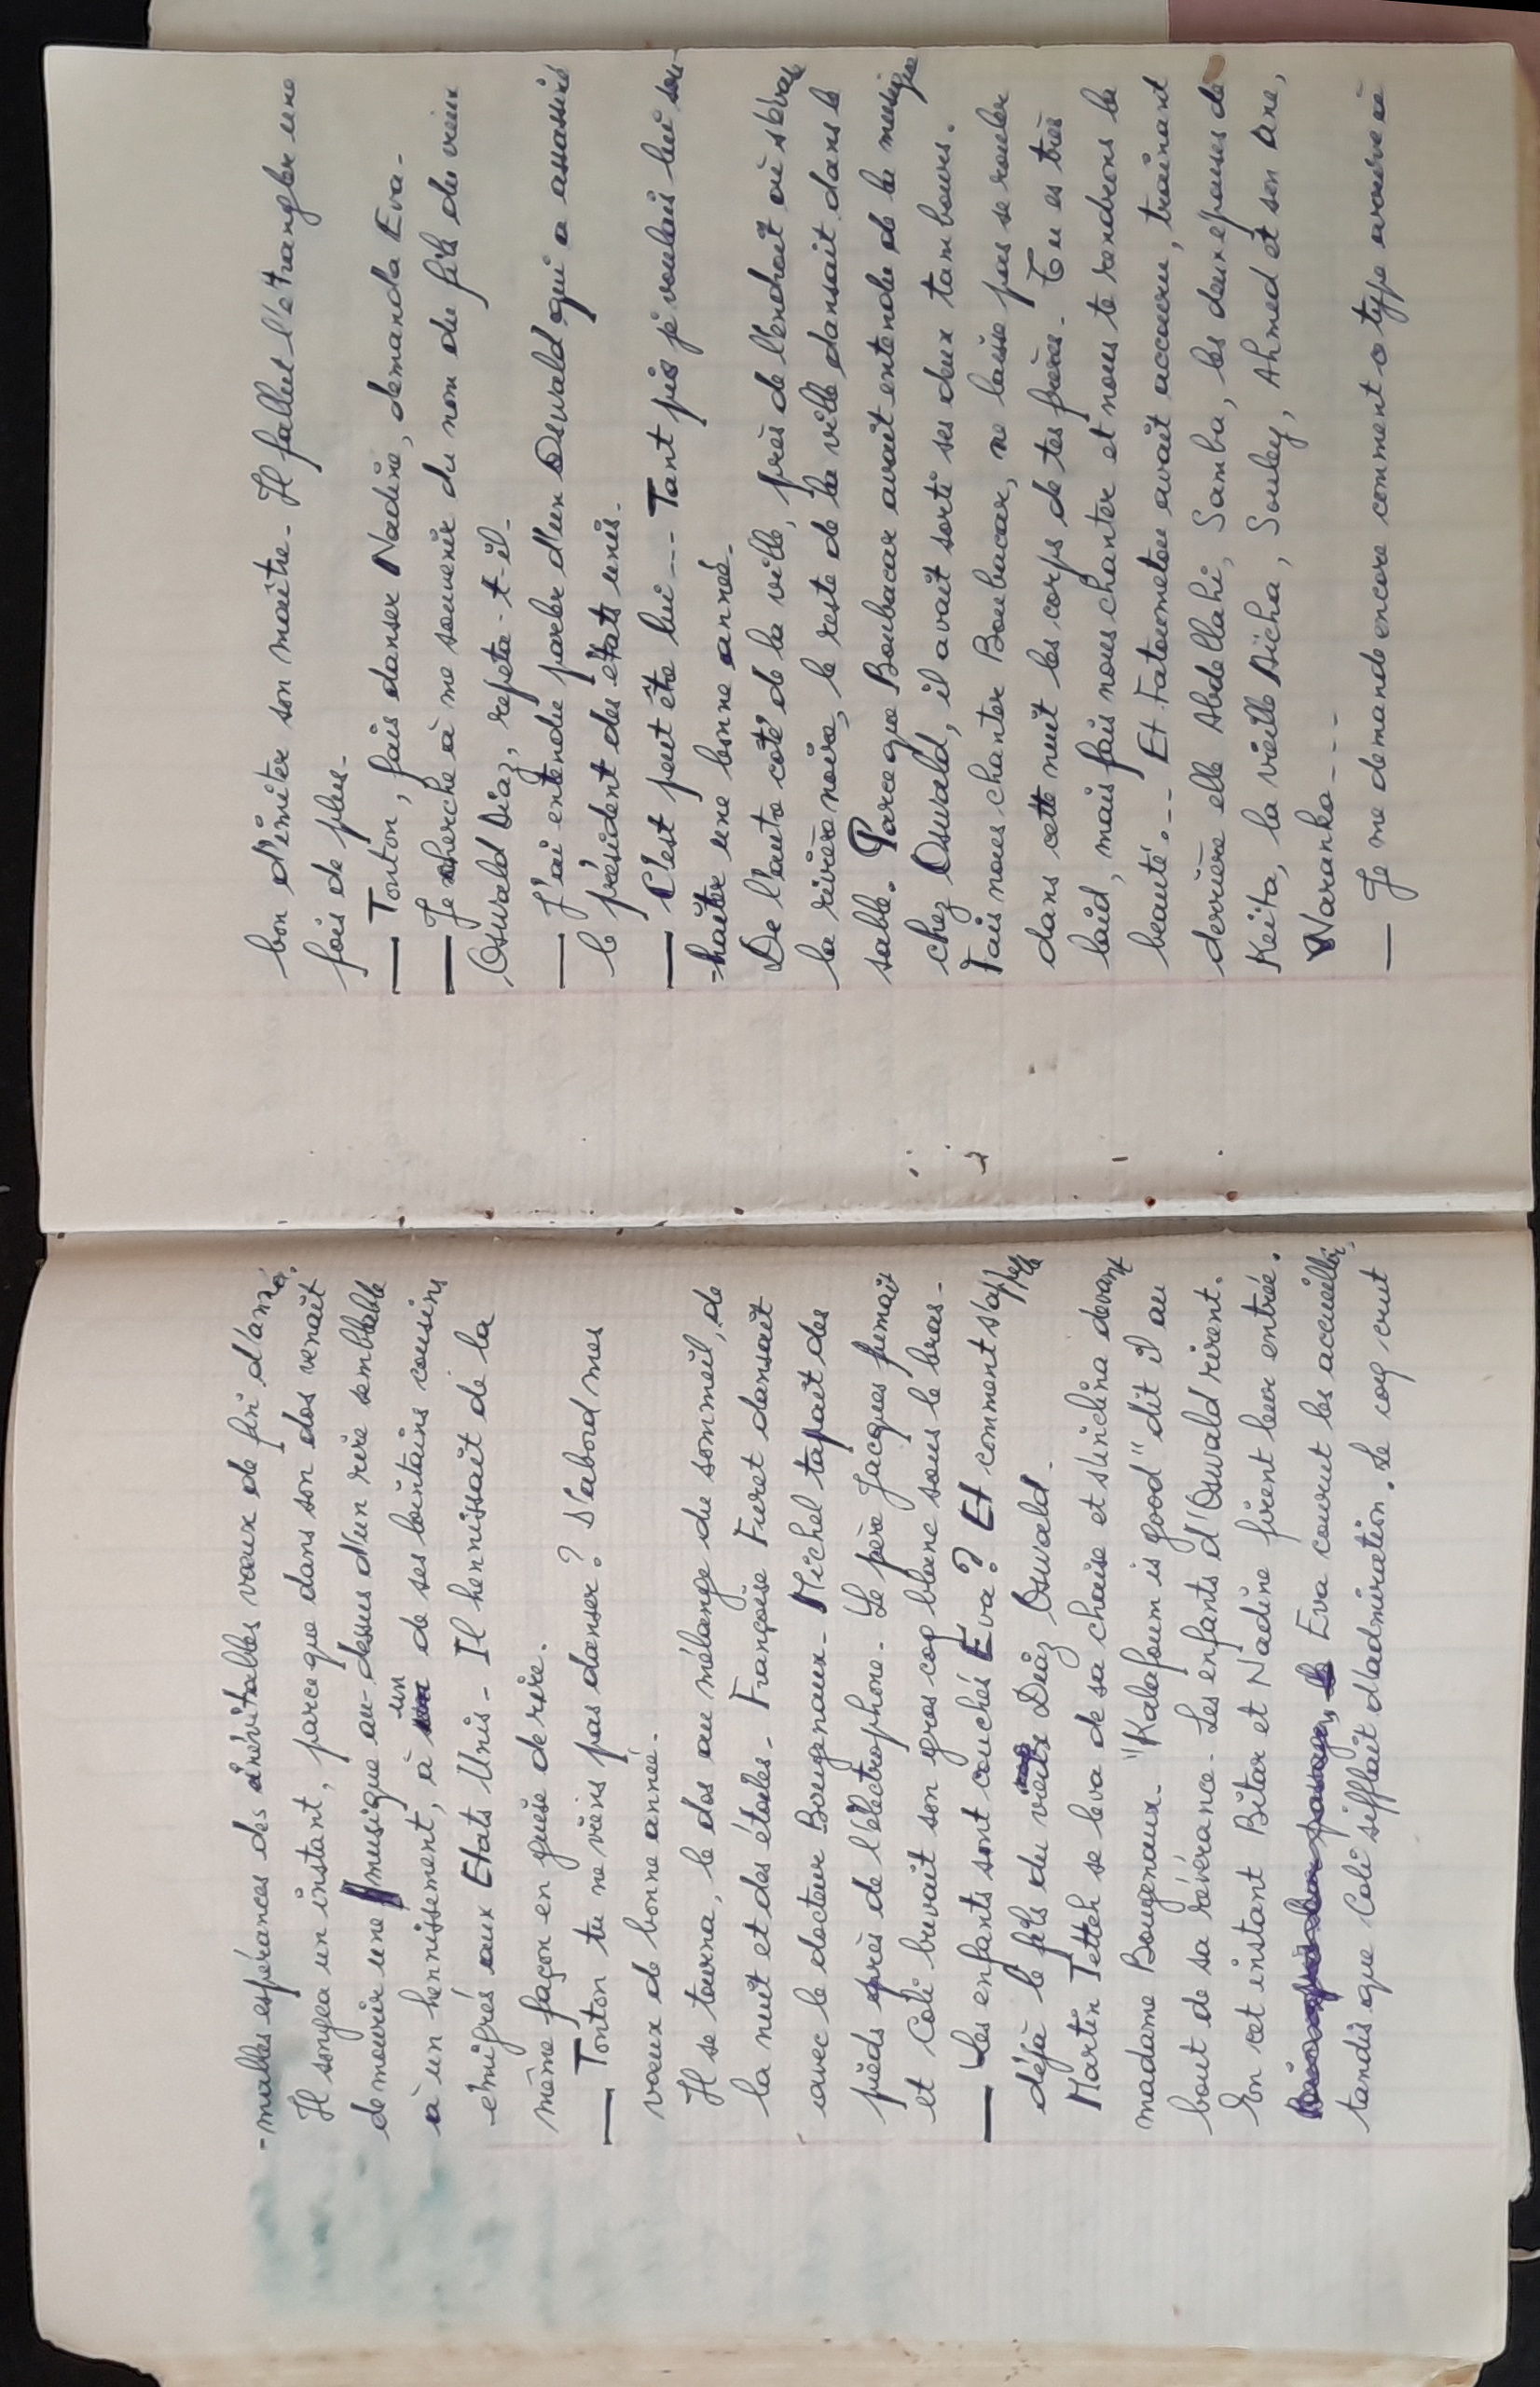 -mables espérances des inévitables vœux de fin d'année.
Il songea un instant, parce que dans son dos venait
de mourir une musique au-dessus d'un rire semblable
à un hennissement, à un de ses lointains cousins
émigrés aux Etats Unis - Il hennissait de la
même façon en guise de rire.
— Tonton tu ne viens pas danser ? D'abord mes
vœux de bonne année.
Il se tourna, le dos au mélange du sommeil, de
la nuit et des étoiles - Françoise Furet dansait
avec le docteur Bougenaux - Michel tapait des
pieds près de l'électrophone - Le père Jacques fumait
et Coli buvait son gros coq blanc sous le bras -
— Les enfants sont couchés Eva ? Et comment s'appelle
déjà le fils du vieux Diaz Oswald -
Martin Tetteh se leva de sa chaise et s'inclina devant
madame Bougenaux - "Kalafoum is good" dit il au
bout de sa révérance - Les enfants d'Oswald rirent.
En cet instant Bitar et Nadine firent leur entrée.
Eva courut les accueillir,
tandis que Coli sifflait d'admiration. Le coq crut
bon d'imiter son maître - Il fallut l'étrangler une
fois de plus -
— Tonton, fais danser Nadine, demanda Eva -
— Je cherche à me souvenir du nom du fils du vieux
Oswald Diaz, repeta-t-il -
— J'ai entendu parler d'un Oswald qui a assassiné
le président des états unis.
— C'est peut être lui --- Tant pis je voulais lui sou-
-haiter une bonne année -
De l'autre coté de la ville, près de l'endroit où s'évase
la rivière noire, le reste de la ville dansait dans le
sable. Parce que Boubacar avait entendu de la musique
chez Oswald, il avait sorti ses deux tambours.
Fais nous chanter Boubacar, ne laisse pas se rouler
dans cette nuit les corps de tes frères - Tu es très
laid, mais fais nous chanter et nous te rendrons la
beauté. -- Et Fatoumetou avait accouru, trainant
derrière elle Abdellahi, Samba, les deux épouses de
Keita, la vieille Aïcha, Souley, Ahmed et son âne,
Naranko ---
— Je me demande encore comment ce type arrive à